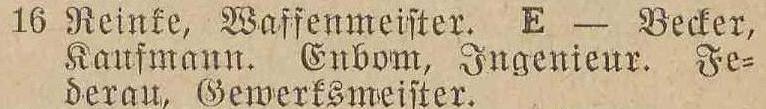 16 Reinke, Waffenmeiſter. E — Becker,
Kaufmann. Enbom, Ingenieur. Fe⸗
derau, Gewerksmeiſter.